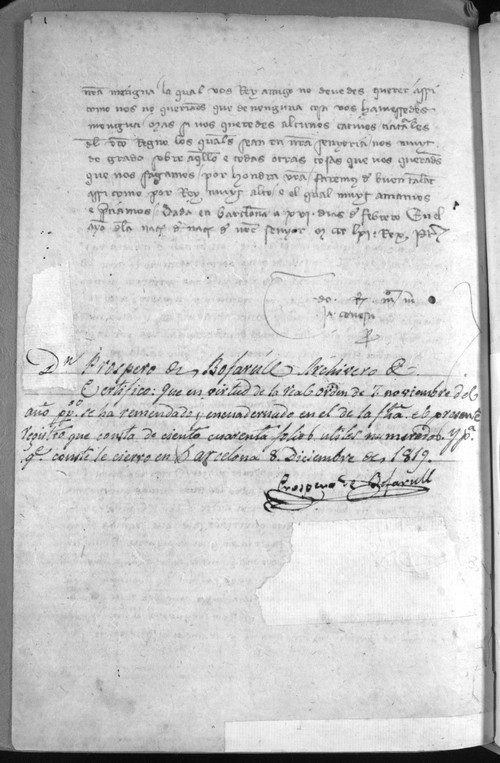 nr̄a mengua la qual vos Rey amigo no devedes querer assi
como nos no queriamos que de nenguna cosa vos haviessedes
mengua mas si vos queredes alcunos cativos nat̄ales
del vr̄o Regno los quals sean en nr̄a senyoria nos muyt
de grado sobre aq̄llo e todas otras cosas que vos querades
que nos fagamos por hondra vr̄a faremos de buen talāt
assi como por Rey muyt alto e el qual muyt amamos
e p̄ciamos Dada en Barcl̄ona a xvi dias d̄ febrero En el
anyo dla naç d̄ nr̄e senyor m ccc lxi Rex P
Ja conesa
Dn. Prospero de Bofarull Archivero &
Certifico: que en virtud de la real orden de 7 noviembre del
año pp.o se ha remendado y encuadernado en el de la fha. el presente
registro que consta de ciento cuarenta folios utiles numerados. Y p.a
q.e conste lo cierro en Barcelona 8 Diciembre de 1819.
Prospero de Bofarull